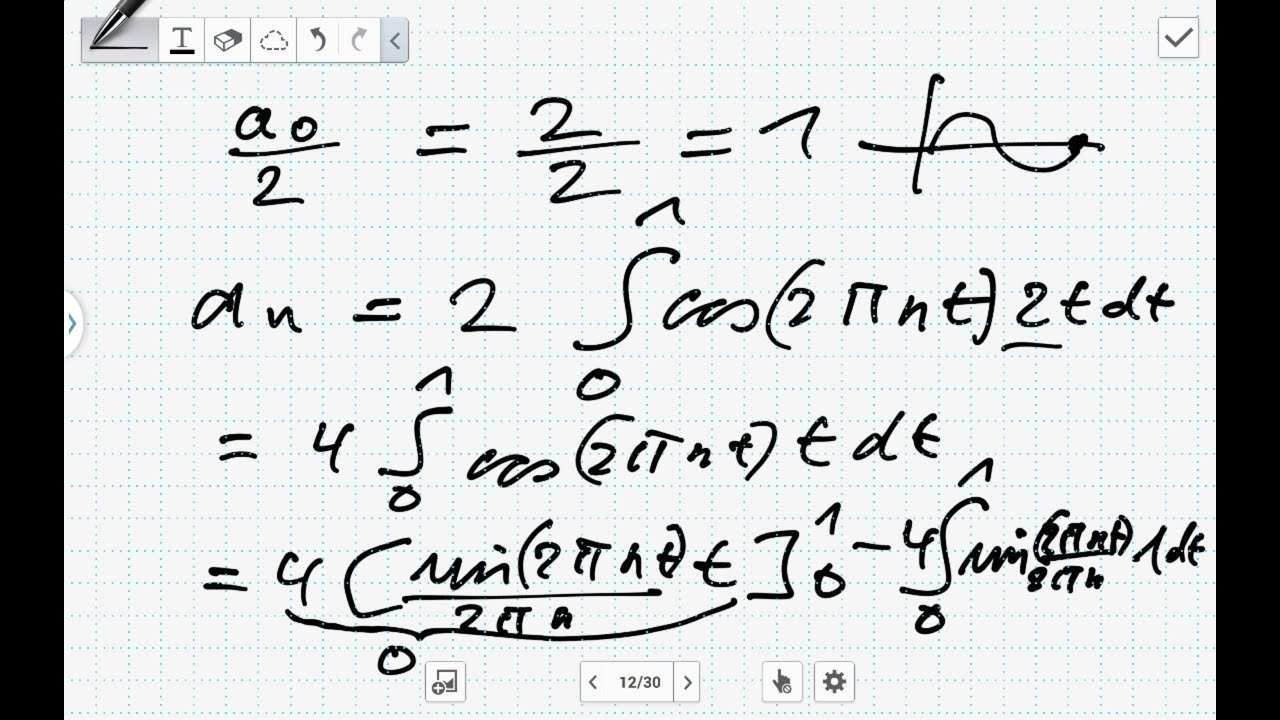 T
a₀/2 = 2/2 = 1
aₙ = 2 ∫₀¹ cos(2πnt) 2t dt
= 4 ∫₀¹ cos(2πnt) t dt
= 4 [sin(2πnt)/(2πn) t]₀¹ − 4 ∫₀¹ sin(2πnt)/(2πn) 1 dt
0
12/30